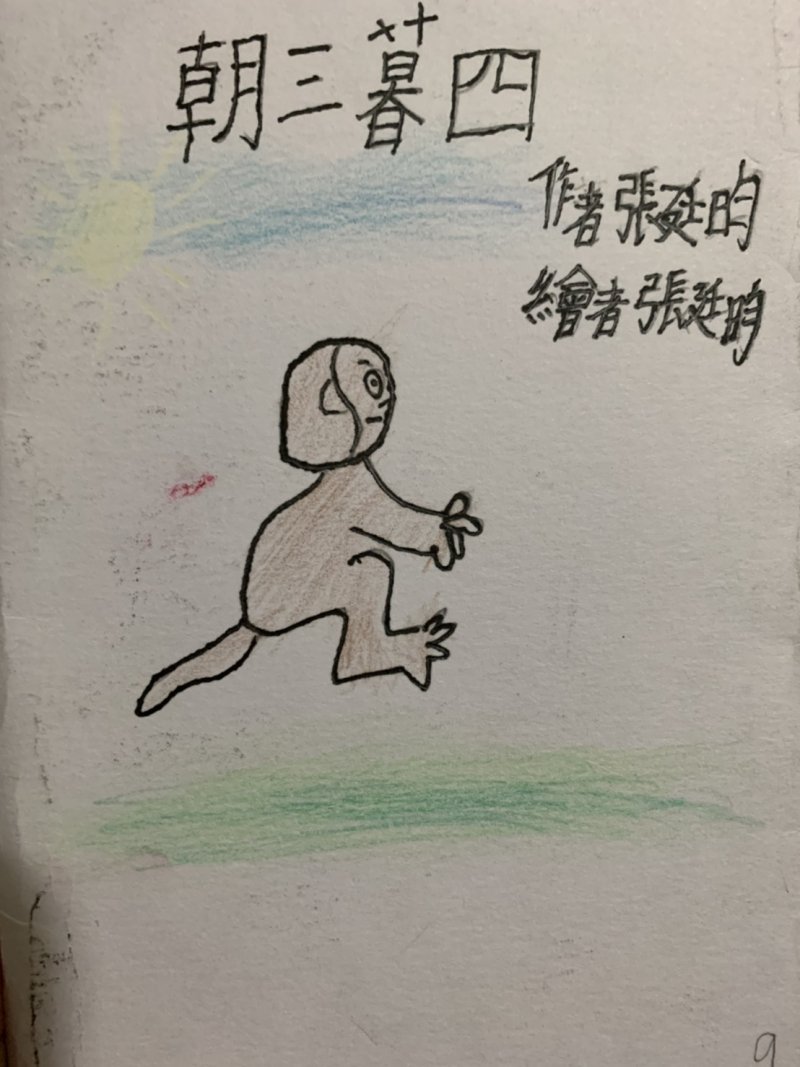 朝三暮四
作者張延昀
繪者張延昀
9